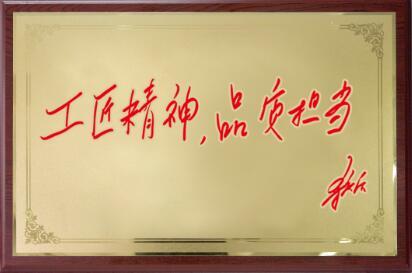 工匠精神,品质担当